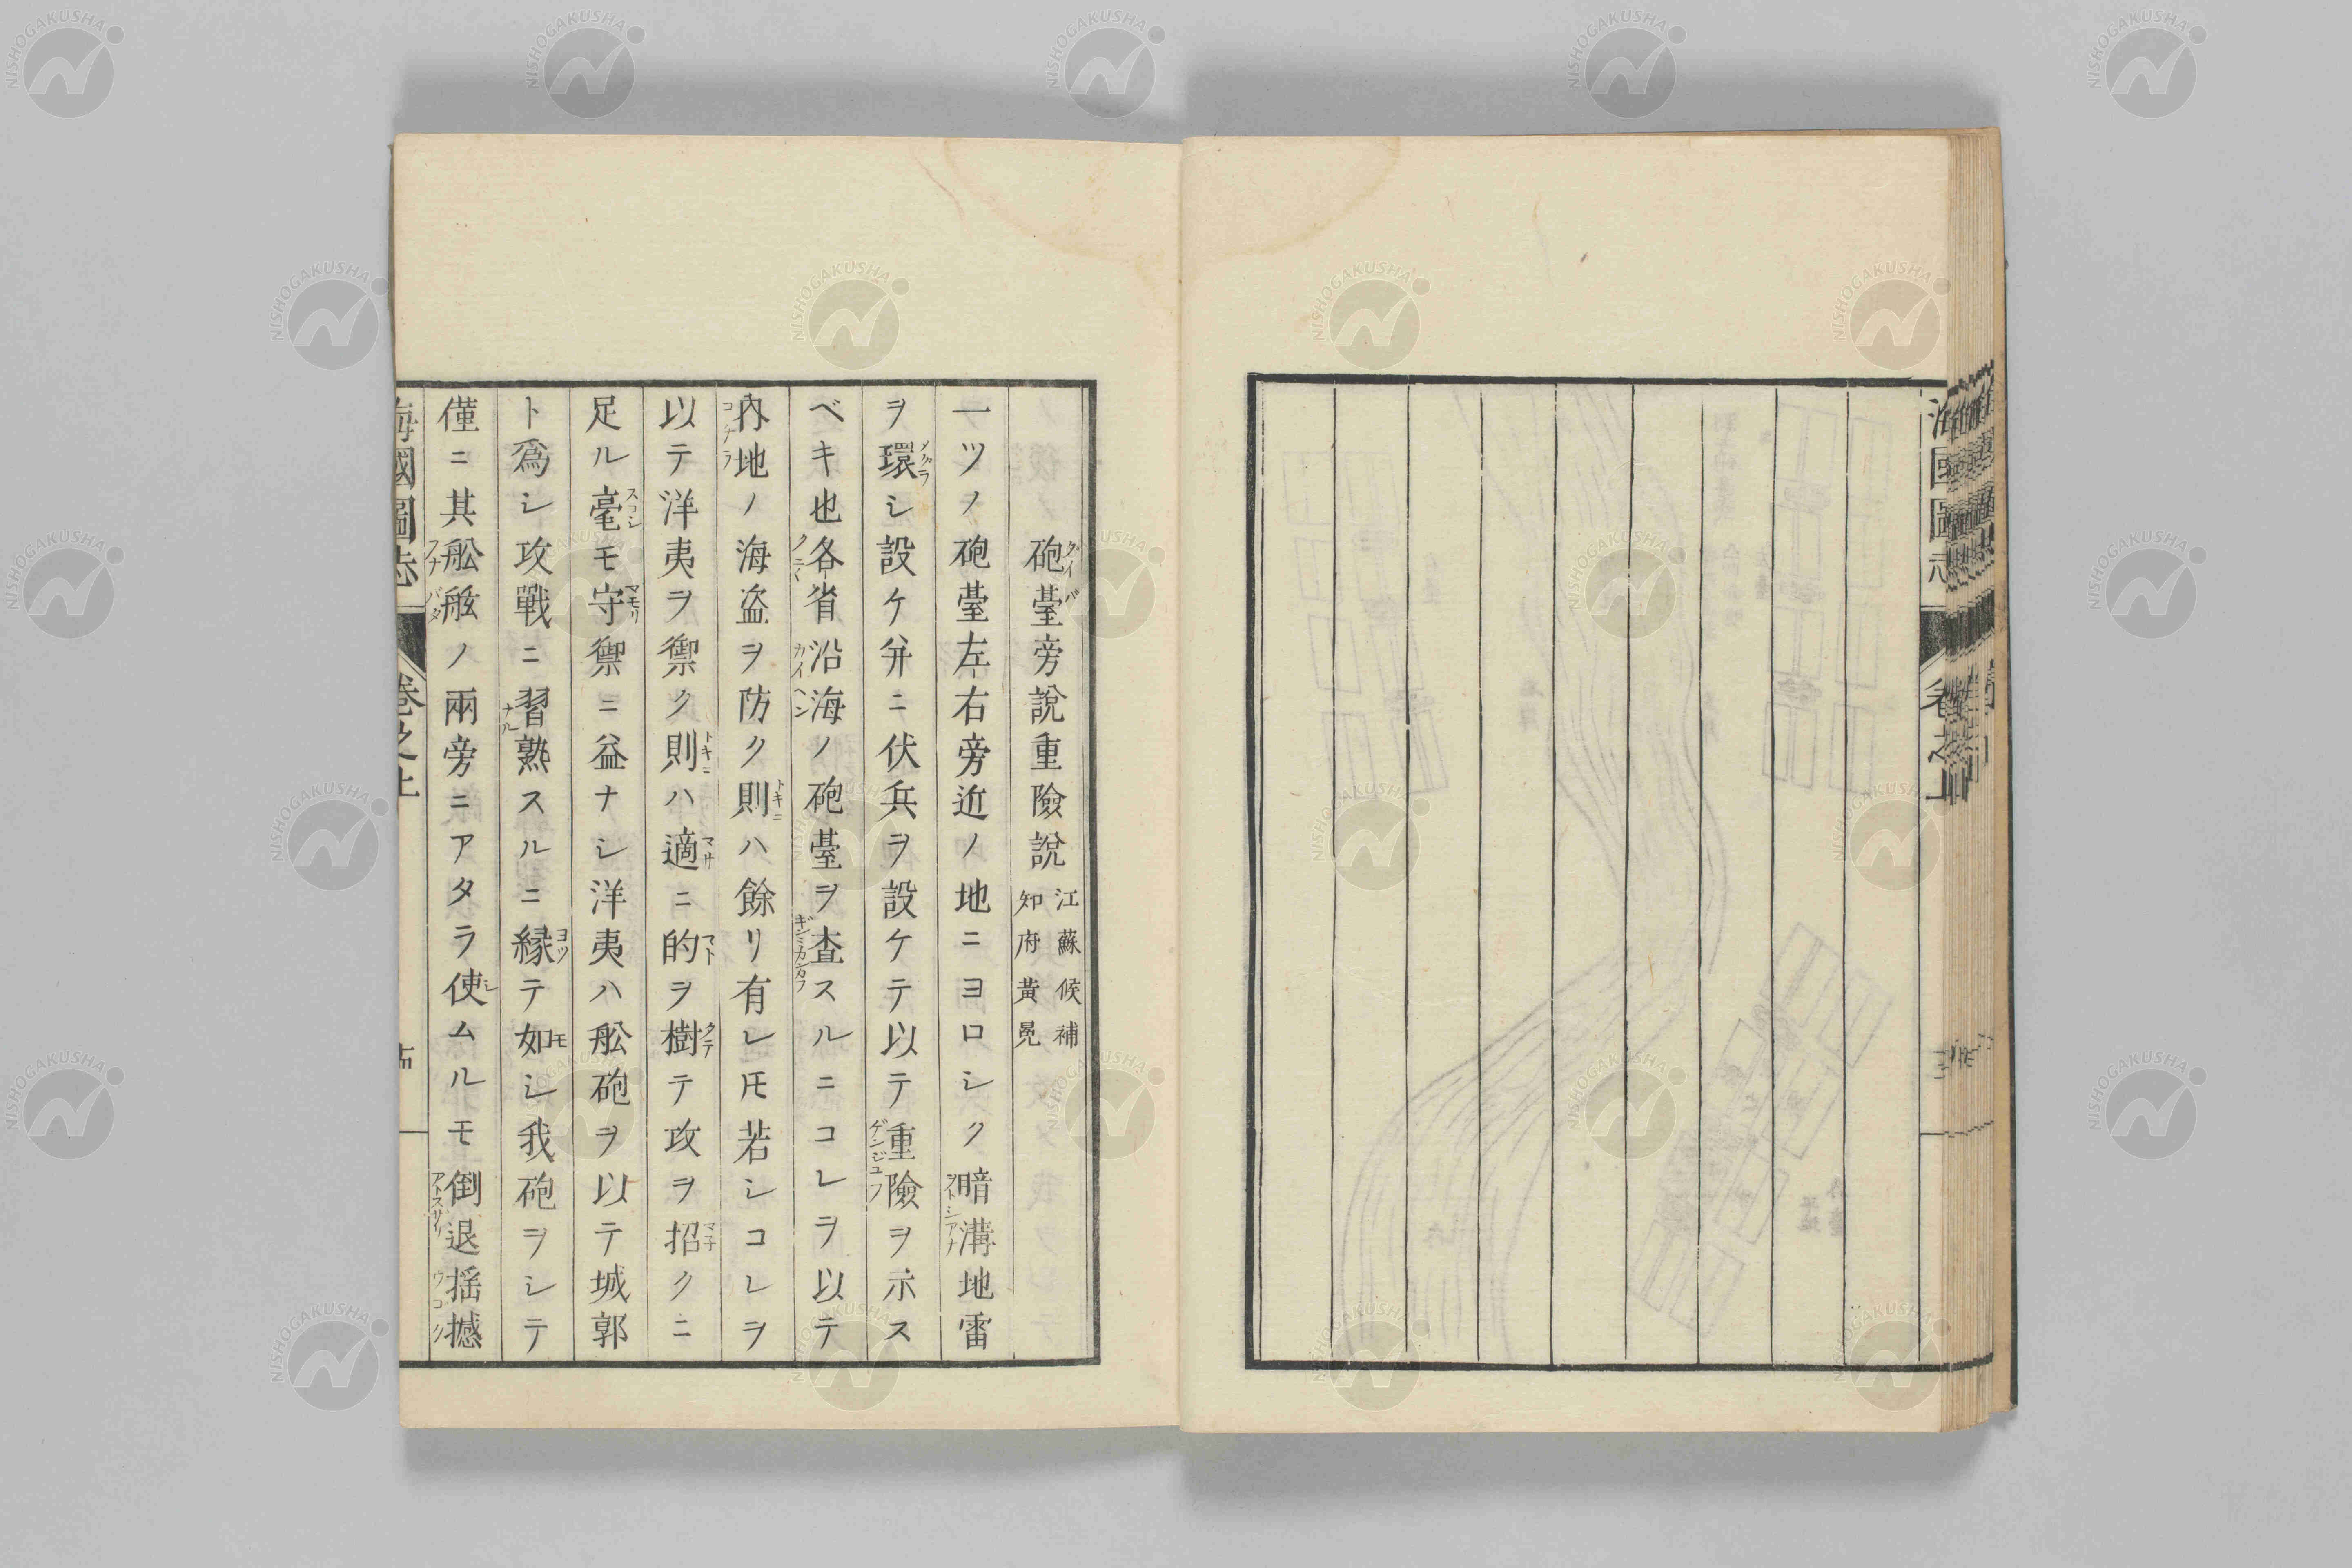 海國圖志
卷之上
砲臺旁說重險說 江蘇候補知府黃冕
一ツノ砲臺左右旁近ノ地ニヨロシク暗溝地雷
ヲ環シ設ケ并ニ伏兵ヲ設ケテ以テ重險ヲ示ス
ベキ也各省沿海ノ砲臺ヲ査スルニコレヲ以テ
內地ノ海盗ヲ防ク則ハ餘リ有レ𪜈若シコレヲ
以テ洋夷ヲ禦ク則ハ適ニ的ヲ樹テ攻ヲ招クニ
足ル毫モ守禦ニ益ナシ洋夷ハ舩砲ヲ以テ城郭
ト爲シ攻戰ニ習熟スルニ縁テ如シ我砲ヲシテ
僅ニ其舩舷ノ兩旁ニアタラ使ムルモ倒退揺撼
海國圖志
卷之上
NISHOGAKUSHA